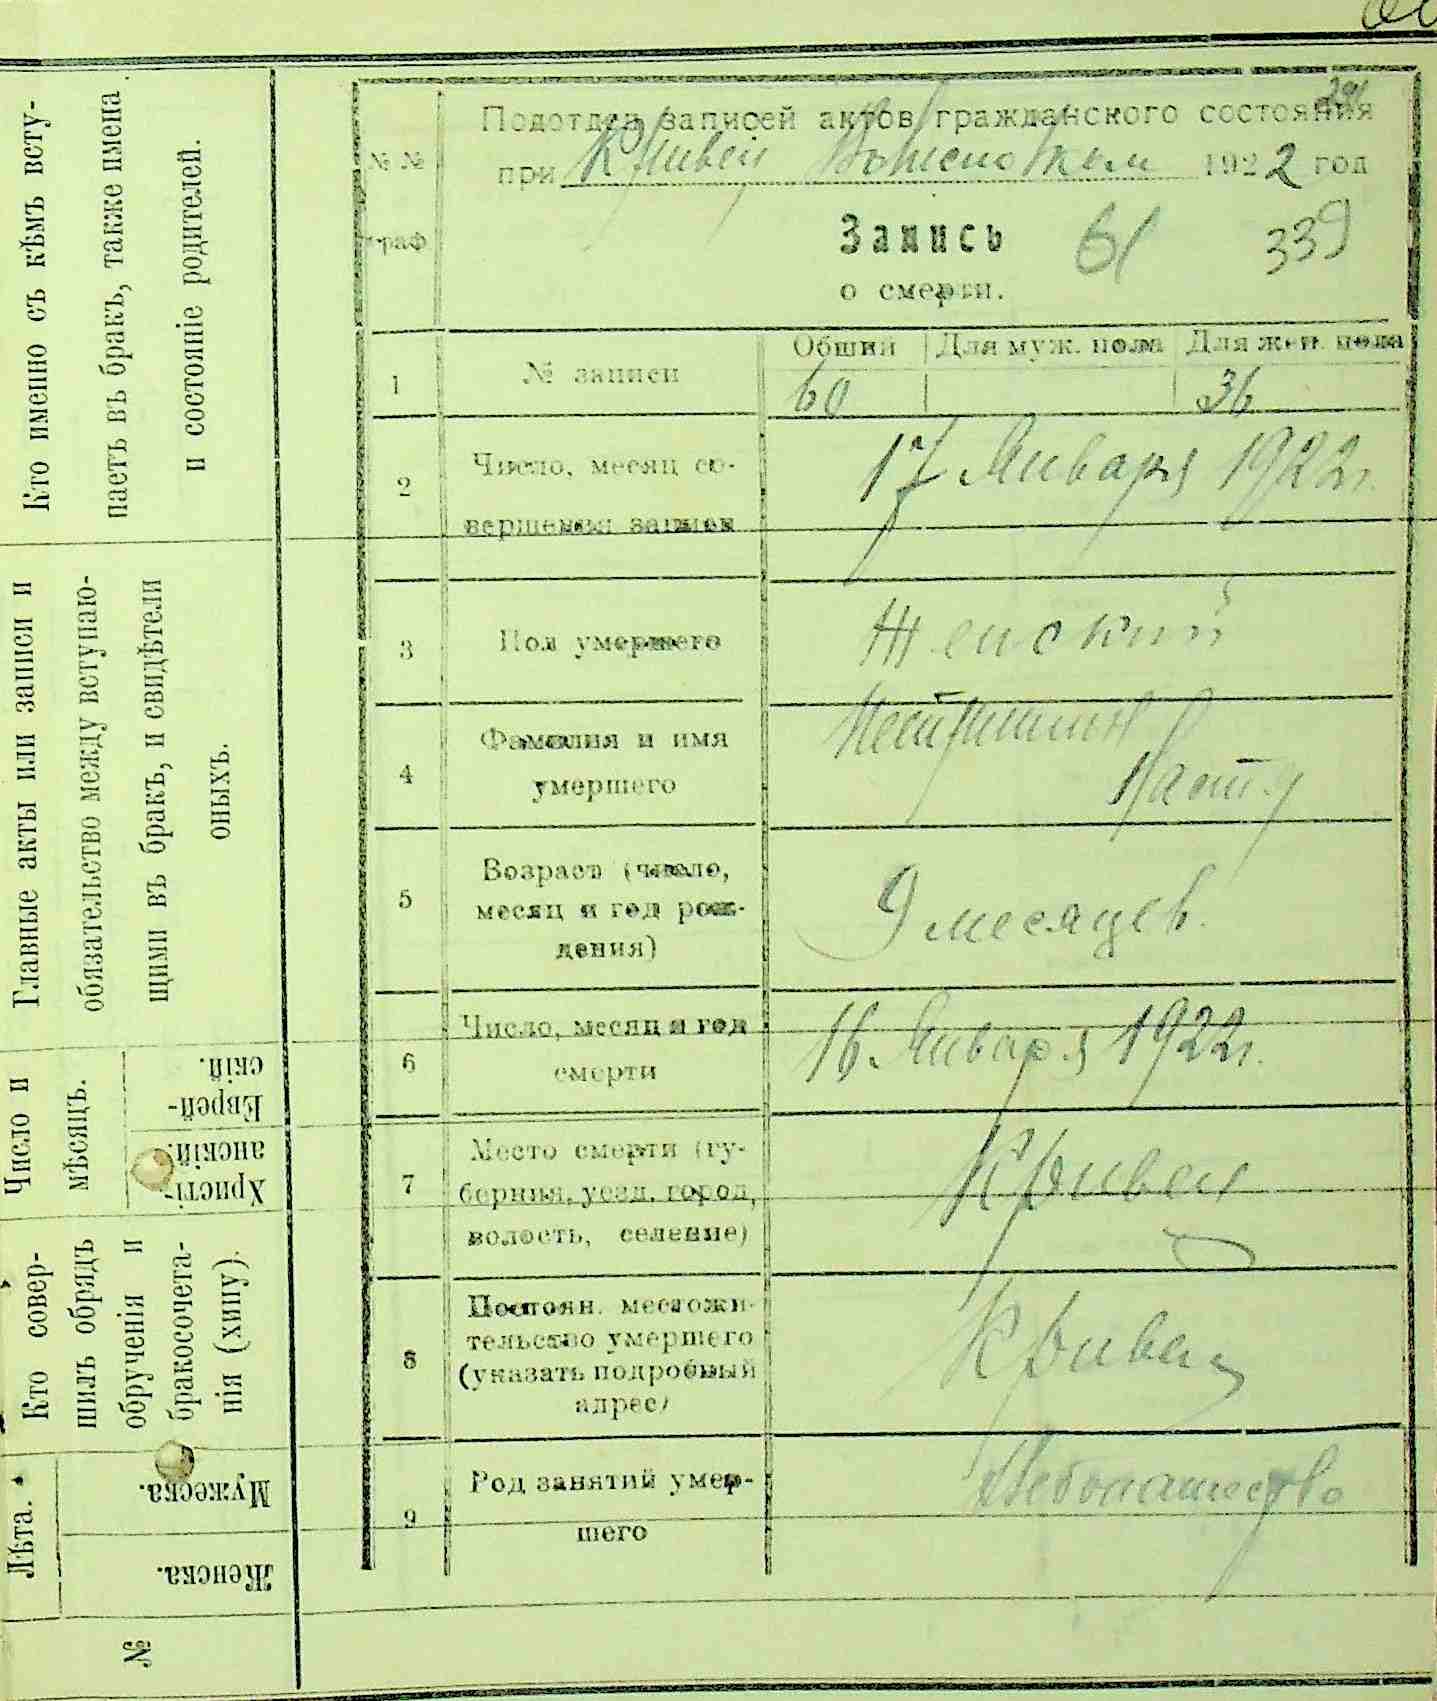 Кто именно съ кѣмъ всту-
паетъ въ бракъ, также имена
и состояніе родителей.
Главные акты или записи и
обязательство между вступаю-
щими въ бракъ, и свидѣтели
оныхъ.
Число и
мѣсяцъ.
Еврей-
скій.
Христі-
анскій.
Кто совер-
шилъ обрядъ
обрученія и
бракосочета-
нія (хипу).
Лѣта.
Мужеска.
Женска.
№
291
Подотдел записей актов гражданского состояния
при 1922 год
№ №
граф
Запись 61 339
о смерти.
Общий Для муж. пола Для жен. пола
1 № записи 60 36
2 Число, месяц со-
вершения записи
17 Января 1922 г.
3 Пол умершего Женский
4 Фамилия и имя
умершего
5 Возраст (число,
месяц и год рож-
дения)
9 месяцев.
6 Число, месяц и год
смерти
16 Января 1922 г.
7 Место смерти (гу-
берния, уезд, город,
волость, селение)
8 Постоян. местожи-
тельство умершего
(указать подробный
адрес)
9 Род занятий умер-
шего
Хлебопашество